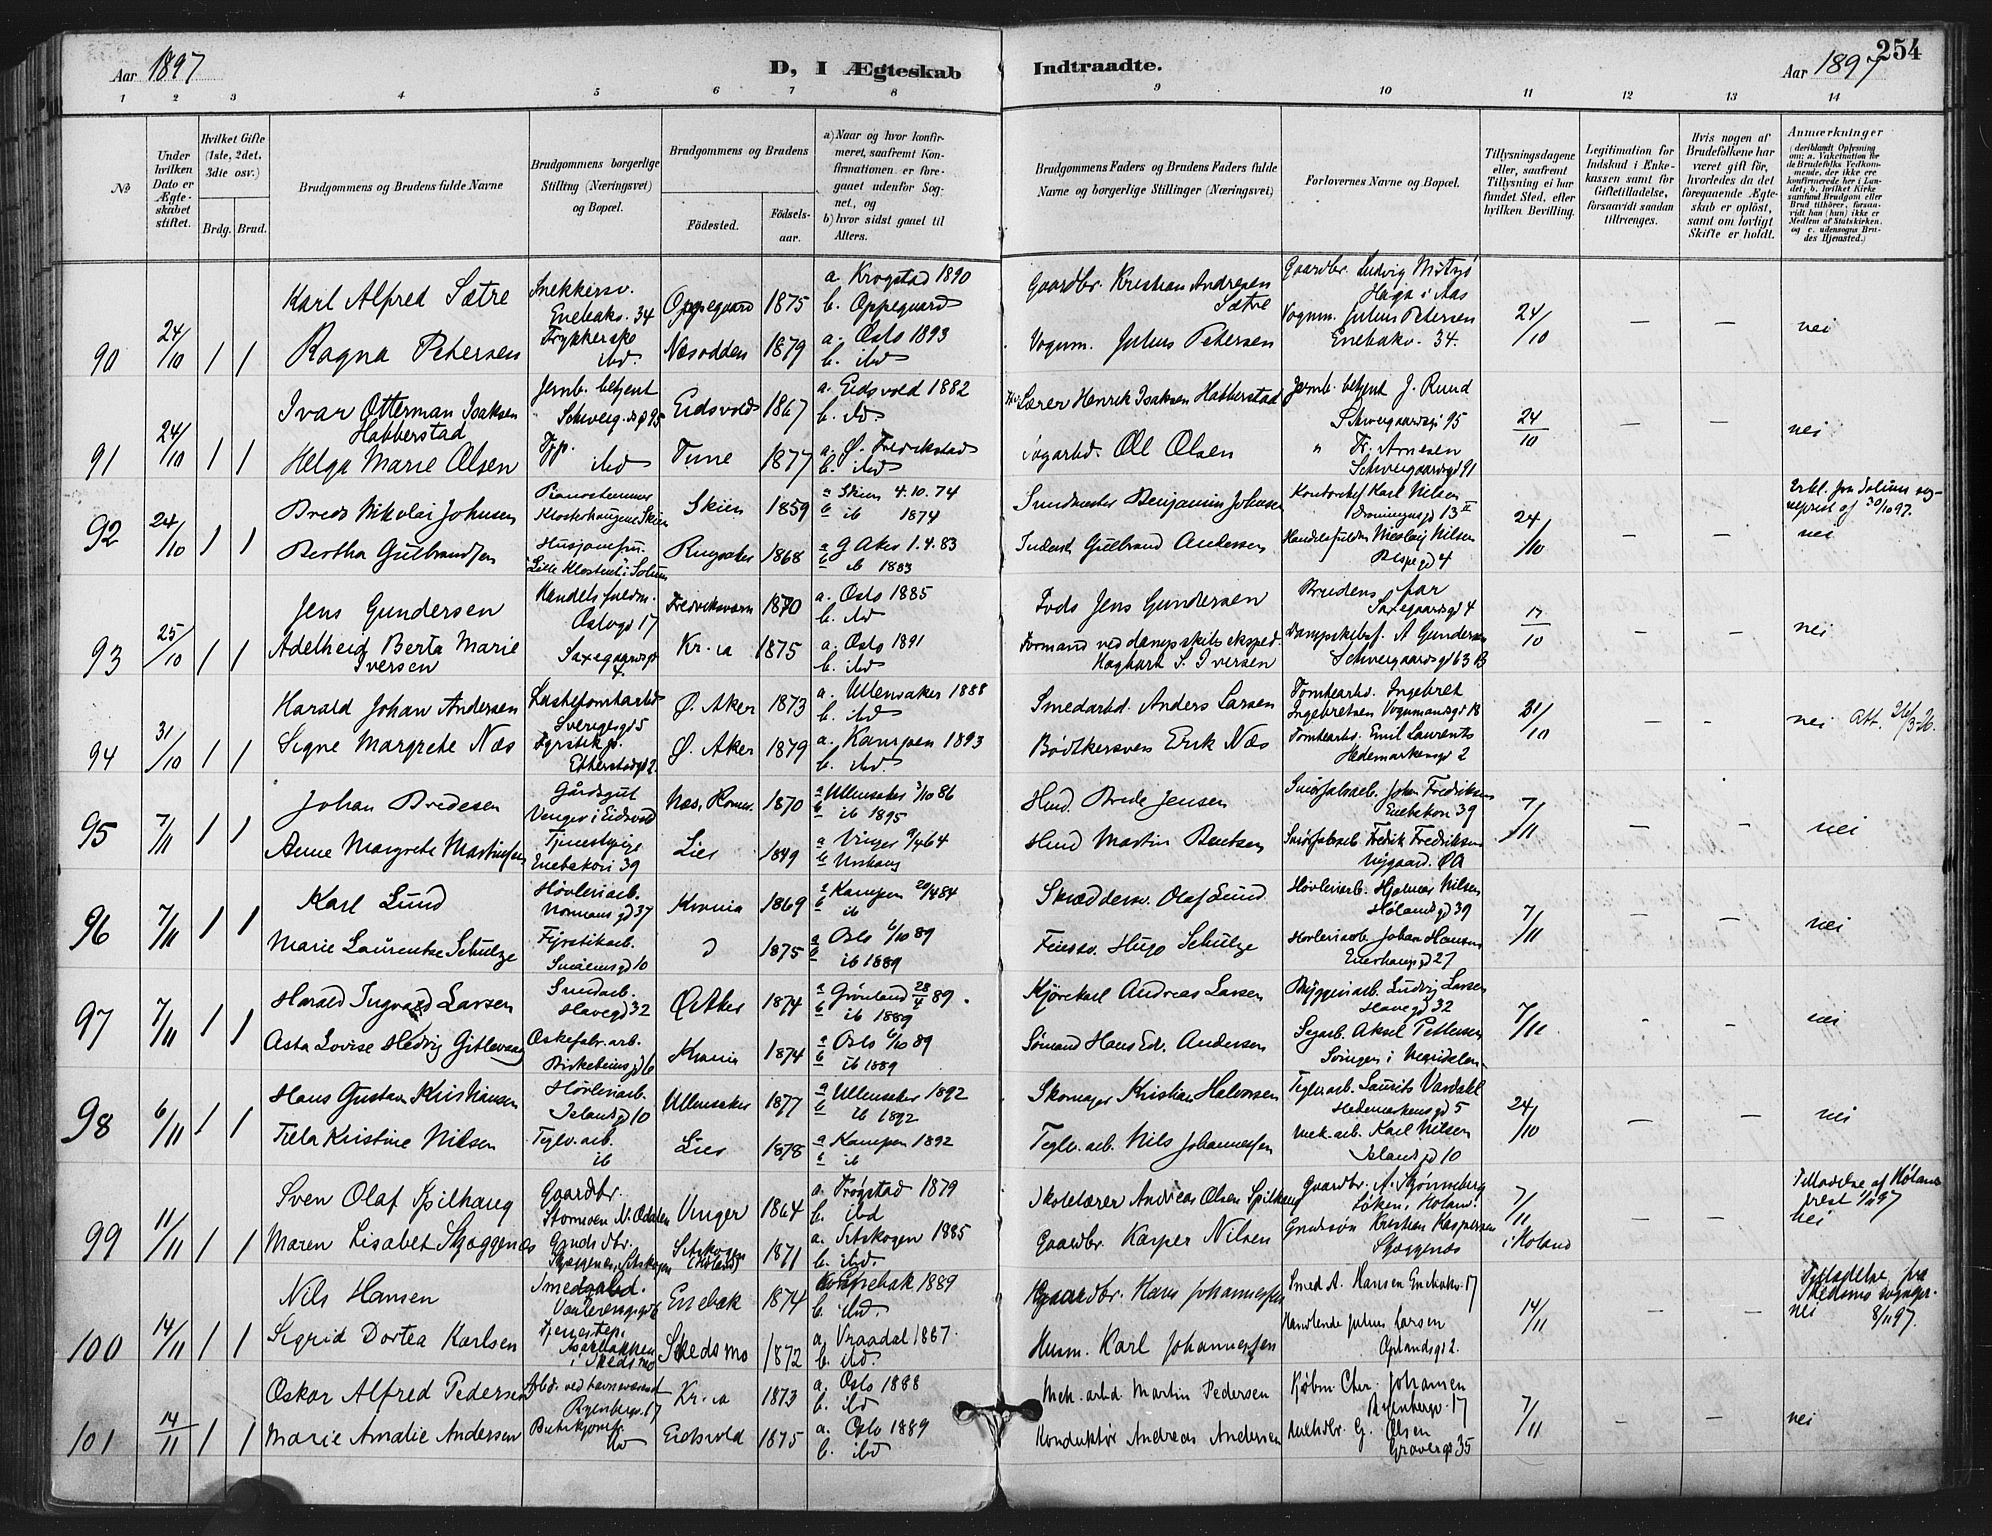 254
Aar 1897
D, I Ægteskab
Indtraadte.
Aar 1897
1 2 3 4 5 6 7 8 9 10 11 12 13 14
No
Under hvilken Dato er Ægteskabet stiftet.
Hvilket Gifte (1ste, 2det, 3die osv.)
Brdg. Brud.
Brudgommens og Brudens fulde Navne
Brudgommens borgerlige Stilling (Næringsvei) og Bopæl.
Brudgommens og Brudens
Fødested.
Fødselsaar.
a) Naar og hvor konfirmeret, saafremt Konfirmationen er foregaaet udenfor Sognet, og
b) hvor sidst gaaet til Alters.
Brudgommens Faders og Brudens Faders fulde Navne og borgerlige Stillinger (Næringsvei)
Forlovernes Navne og Bopæl.
Tillysningsdagene eller, saafremt Tillysning ei har fundet Sted, efter hvilken Bevilling.
Legitimation for Indskud i Enkekassen samt for Giftetilladelse, forsaavidt saadan tiltrænges.
Hvis nogen af Brudefolkene har været gift før, hvorledes da det foregaaende Ægteskab er opløst, samt om lovligt Skifte er holdt.
Anmærkninger (deriblandt Oplysning om: a. Vakcination for de Brudefolks Vedkommende, der ikke ere konfirmerede her i Landet; b. hvilket Kirkesamfund Brudgom eller Brud tilhører, forsaavidt han (hun) ikke er Medlem af Statskirken, og c. udensogns Brudes Hjemsted.)
90 24/10 1 1
Karl Alfred Sætre Snekkersv. Enebakv. 34 Oppegaard 1875 a. Krogstad 1890 b. Oppegaard Gaardbr. Kristian Andresen Sætre Gaardbr. Ludvig Haga i Aas 24/10 — — nei
Ragna Petersen ibd Næsodden 1879 a. Oslo 1893 b. ibd Vognm. Julius Petersen Vognm. Julius Petersen Enebakv. 34.
91 24/10 1 1
Ivar Otterman Isaksen Habberstad Jernb. betjent Schweig. gd 95 Eidsvold 1867 a. Eidsvold 1882 b. ibd. Lærer Henrik Isaksen Habberstad Jernb. betjent J. Ruud Schweigaardsg 95 24/10 — — nei
Helga Marie Olsen ibd Tune 1877 a. Ø. Fredrikstad b. ibd Ole Olsen " Fr. Arnesen Schweigaardsgd 91
92 24/10 1 1
Brede Nikolai Johnsen Pianostemmer Klosterhaugene Skien Skien 1859 a Skien 4.10.74 b ib 1874 Benjamin Johnsen Kontorchef Karl Nilsen Dronningensgd 13 II 24/10 — — nei
Bertha Gulbrandsen "Lille Klostent" i Solum Ringsaker 1868 a G Aker 1.4.83 b ib 1883 Inderst Gulbrand Andersen Handelsfuldm Nicolay Nilsen Bispegd 4
93 25/10 1 1
Jens Gundersen Handelsfuldm. Oslogd 17 Fredriksværn 1870 a. Oslo 1885 b. ibd Fods Jens Gundersen Brudens far Saxegaardsgd 4 17/10 — — nei
Adelheid Berta Marie Iversen Saxegaardsgd 4 Kr.ia 1875 a. Oslo 1891 b. ibd Formand ved dampskibs eksped. Hagbart S. Iversen Dampskibsf. A Gundersen Schweigaardsgd 63 B
94 31/10 1 1
Harald Johan Andersen Lastetomtarbd Sverigegd 5 Ø. Aker 1873 a. Ullensaker 1888 b. ibd Smedarbd. Anders Larsen Tomtearbd. Ingebret Ingebretsen Vognmandsgd 18 31/10 — — nei Att. 26/3-26.
Signe Margrete Næs Fyrstikp. Etterstadgd 2 Ø. Aker 1879 a. Kampen 1893 b. ibd. Bødtkersvend Erik Næs Tomtearbd. Emil Laurents Hedemarkensgd 2
95 7/11 1 1
Johan Bredesen Gårdsgut Venger i Eidsvold Næs, Rome. 1870 a Ullensaker 3/10 86 b ib 1895 Husd. Brede Jensen Smørfabarb. Johan Fredriksen Enebakv 39 7/11 — — nei
Anne Margrete Martinsen Tjenestpige Enebakvei 39 Lier 1849 a Vinger 9/4 64 b Urskaug Husd Martin Bentsen Smørfabarb Fredrik Fredriksen Nygaard. ØA
96 7/11 1 1
Karl Lund Høvleriarb. Normans gd 37 Krania 1869 a Kampen 20/4 84 b ib Skrædderv. Olaf Lund Høvleriarb. Hjalmar Nilsen Hølandsgd 39 7/11 — — nei
Marie Laurentse Schulze Fyrstikarb. Smålensgd 10 1875 a Oslo 6/10 89 b ib 1889 Hugo Schulze Høvleriarb Johan Hansen Enerhaugsgd 27
97 7/11 1 1
Harald Ingvald Larsen Havegd 32 Ø Aker 1874 a Grønland 28/4 89. b ib 1889 Kjørekarl Andreas Larsen Bryggeriarb. Ludvig Larsen Havegd 32 7/11 - - nei
Asta Lovise Hedvig Æskefabr. arb. Birkebeinsgd 6 Krania 1874 a Oslo 6/10 89 b ib 1889 Sømand Hans Ed. Andersen Aksel Pettersen
98 6/11 1 1
Hans Gustav Kristiansen Høvleriarb. Islandsgd 10 Ullensaker 1877 a Ullensaker 1892 b ib 1892 Skomager Kristian Halvorsen Teglv.arb. Laurits Vardahl Hedemarkensgd 5 24/10 — — nei
Tilla Kristine Nilsen Teglv.arb. ib Lier 1878 a Kampen 1892 b ib Teglv. arb. Nils Johannessen Mek.arb. Karl Nilsen Islandsgd 10
99 11/11 1 1
Sven Olaf Spilhaug Gaardbr. N. Odalen Vinger 1864 a. Trøgstad 1879 b. ibd Skolelærer Andreas Olsen Spilhaug Gaardbr. A. Skjønneberg Løken i Høland. 7/11 — — Tilladelse af Hølands prest 1/11 97 nei
Maren Lisabet Skjæggenæs Grndsdbr. Skjæggenæs, Setskogen Setskogen (Høland) 1871 a. Setskogen 1885 b. ibd. Gaardbr. Kasper Nilsen Kristian Kaspersen Skjæggenæs i Høland
100 14/11 1 1
Nils Hansen Smedarbd. Enebak 1874 a. Enebak 1889 b. ibd. Gaardbr. Hans Johannessen Smed A. Hansen Enebakv. 17 14/11 — — Tilladelse fra Skedsmo sogneprest 8/11 97. nei
Sigrid Dortea Karlsen Tjenestep. i Skedsmo Skedsmo 1872 a. Vraadal 1867. b. ibd. Husm. Karl Johannessen Handlende Julius Larsen Oplandsgd 2.
101 14/11 1 1
Oskar Alfred Pedersen Arbd. ved havnevæsenet Ryenbergv. 17 Kr.ia 1873 a. Oslo 1888 b. ibd Mek. arbd. Martin Pedersen Kjøbm Chr. Johansen Ryenbergv. 17 7/11 — — nei
Marie Amalie Andersen Butikjomfr. ibd Eidsvold 1875 a. Oslo 1889 b. ibd Konduktør Andreas Andersen G. Olsen Grøvergd 35